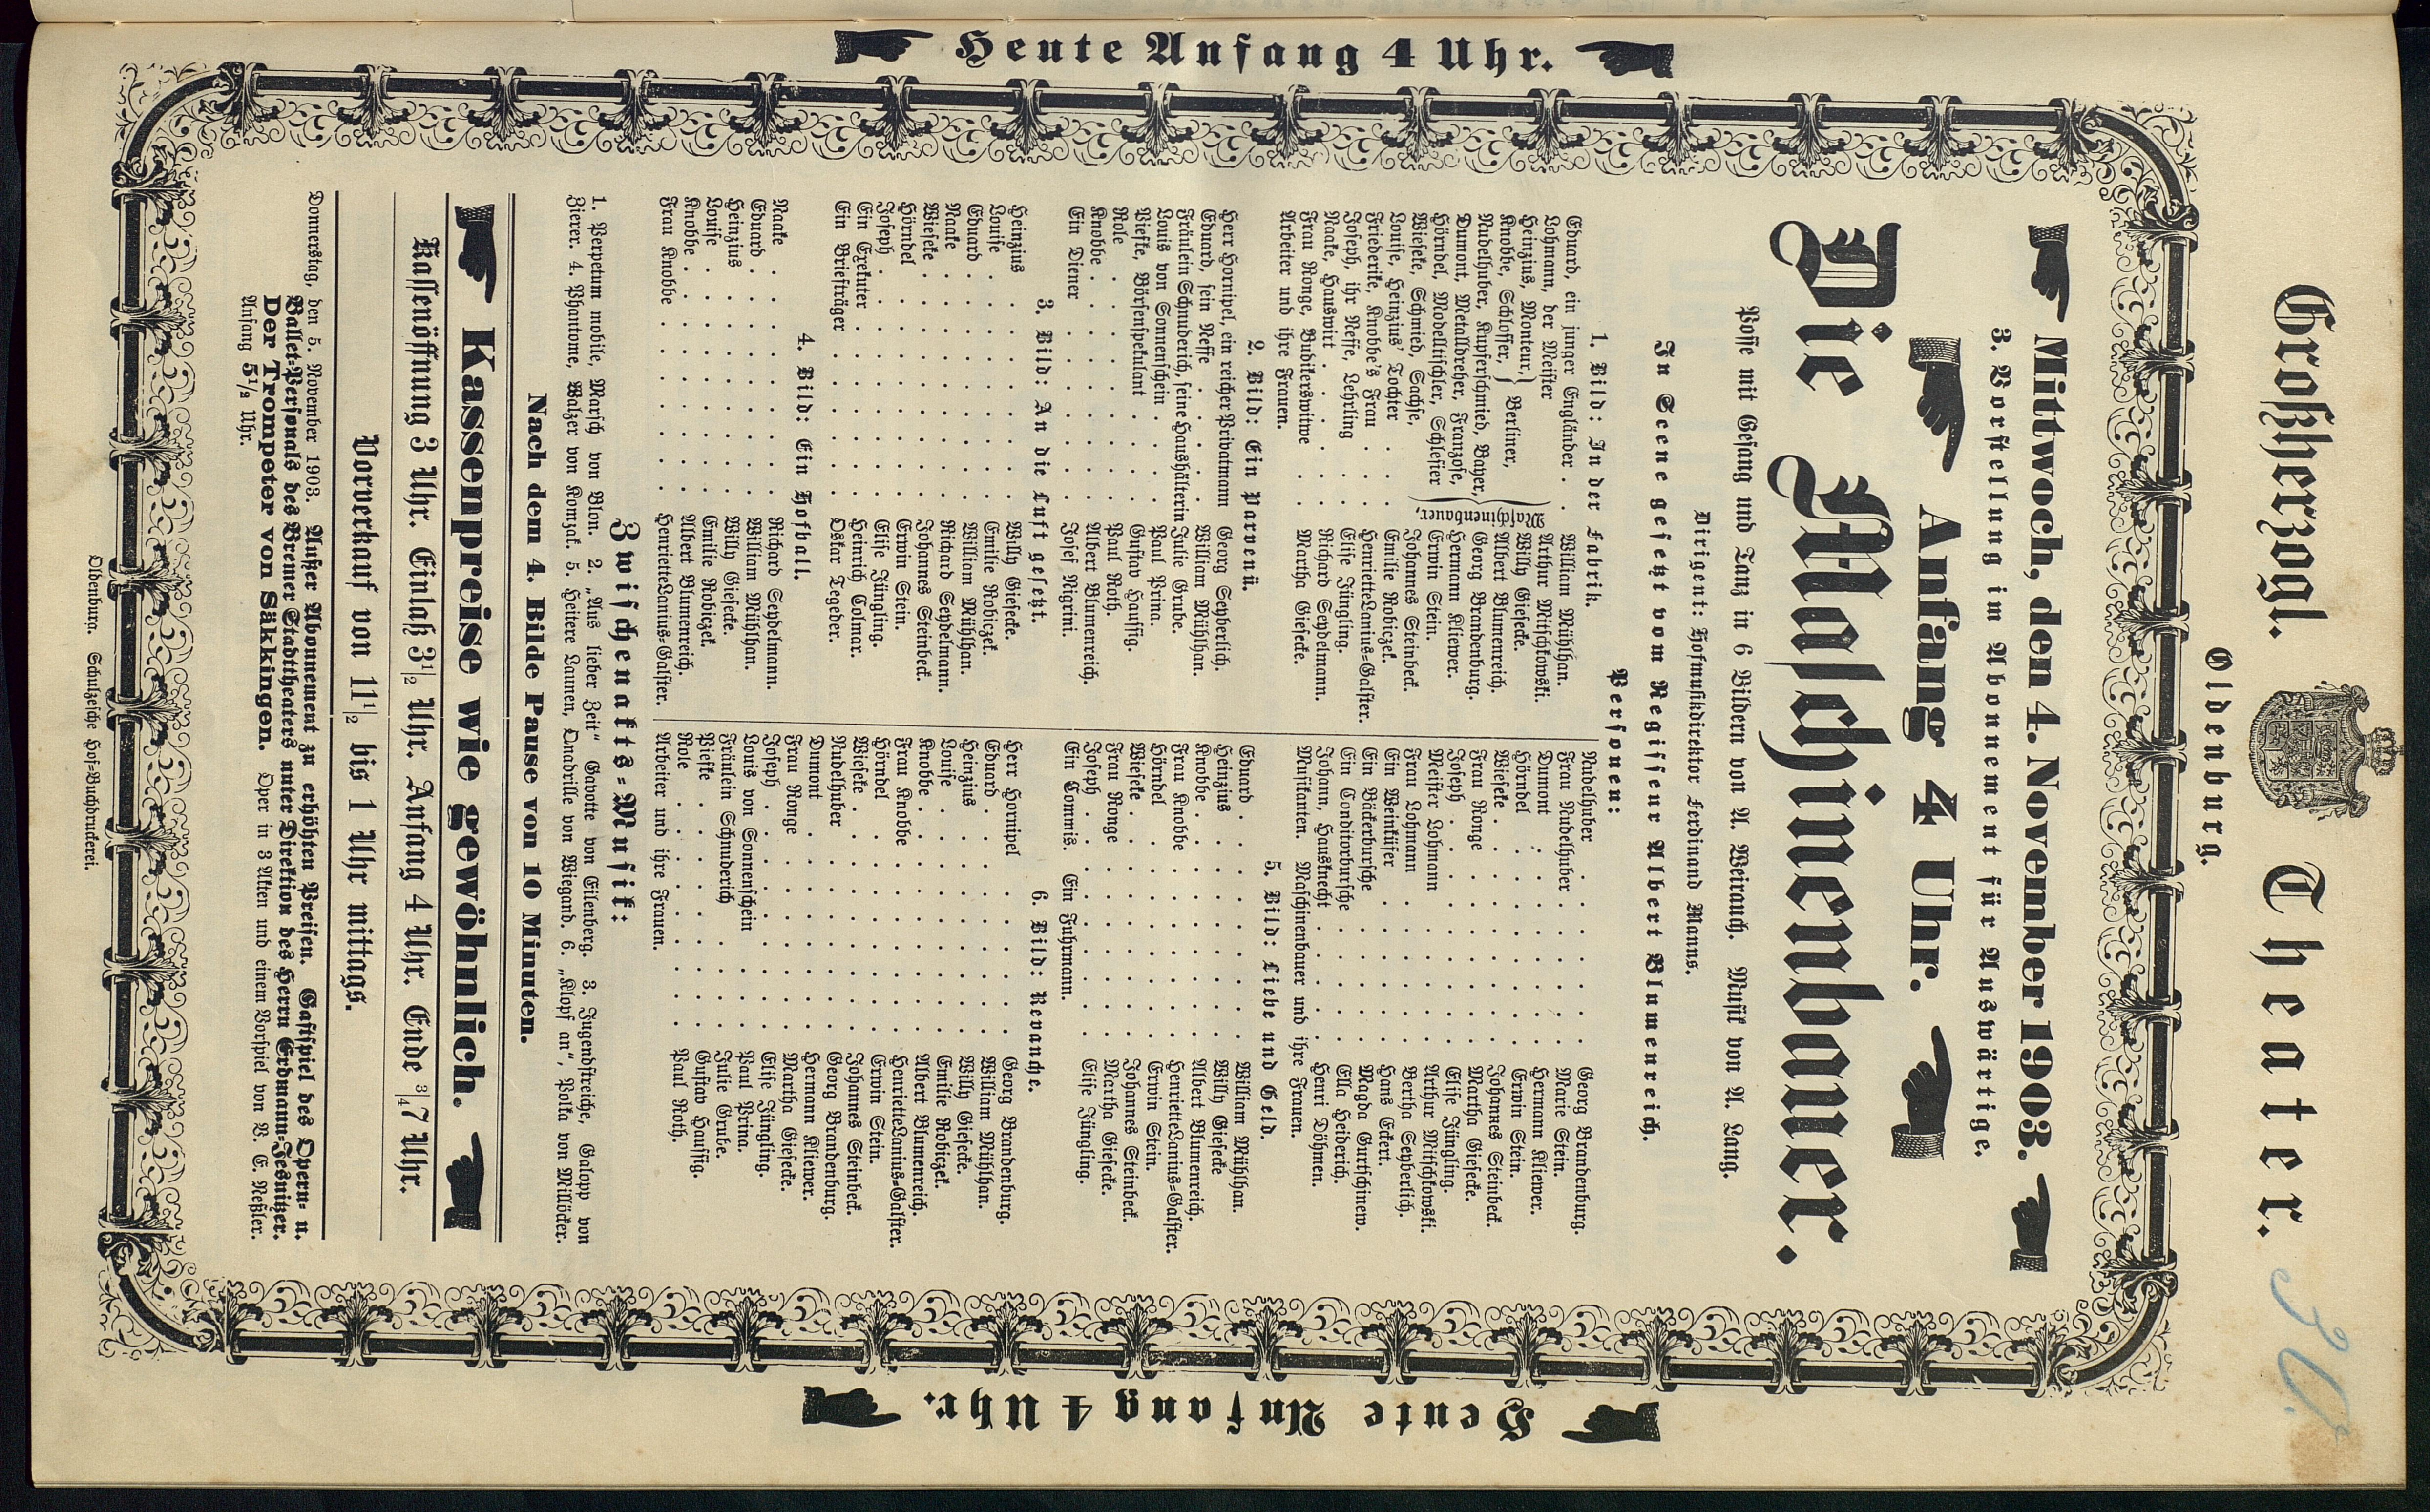 Großherzogl. Theater.
Oldenburg.
Heute Anfang 4 Uhr.
Mittwoch, den 4. November 1903.
3. Vorstellung im Abonnement für Auswärtige.
Anfang 4 Uhr.
Die Maschinenbauer.
Posse mit Gesang und Tanz in 6 Bildern von A. Weirauch. Musik von A. Lang.
Dirigent: Hofmusikdirektor Ferdinand Manns.
In Scene gesetzt vom Regisseur Albert Blumenreich.
Personen:
1. Bild: In der Fabrik.
Eduard, ein junger Engländer . . William Mühlhan.
Lohmann, der Meister Arthur Mitschkowski.
Heinzius, Monteur, } Berliner, Willy Giesecke.
Knobbe, Schlosser, Albert Blumenreich.
Nudelhuber, Kupferschmied, Bayer, Georg Brandenburg.
Dumont, Metalldreher, Franzose, Hermann Kliewer.
Hörndel, Modelltischler, Schlesier Erwin Stein.
Wieseke, Schmied, Sachse, Johannes Steinbeck.
Maschinenbauer,
Louise, Heinzius' Tochter . . . Emilie Robiczek.
Friederike, Knobbe's Frau . . . Henriette Lanius-Galster.
Joseph, ihr Neffe, Lehrling . . . Elise Jüngling.
Naake, Hauswirt . . . . . Richard Seydelmann.
Frau Ronge, Budikerswitwe . . . Martha Giesecke.
Arbeiter und ihre Frauen.
2. Bild: Ein Parvenü.
Herr Hornipel, ein reicher Privatmann Georg Seyberlich.
Eduard, sein Neffe . . . . . William Mühlhan.
Fräulein Schnuderich, seine Haushälterin Julie Grube.
Louis von Sonnenschein . . . . Paul Prina.
Pieske, Börsenspekulant . . . . Gustav Haussig.
Role . . . . . . . . Paul Roth.
Knobbe . . . . . . . . Albert Blumenreich.
Ein Diener . . . . . . . Josef Nigrini.
3. Bild: An die Luft gesetzt.
Heinzius . . . . . . . Willy Giesecke.
Louise . . . . . . . . Emilie Robiczek.
Eduard . . . . . . . . William Mühlhan.
Naake . . . . . . . . Richard Seydelmann.
Wieseke . . . . . . . . Johannes Steinbeck.
Hörndel . . . . . . . . Erwin Stein.
Joseph . . . . . . . . Elise Jüngling.
Ein Exekuter . . . . . . . Heinrich Colmar.
Ein Briefträger . . . . . . Oskar Tegeder.
4. Bild: Ein Hofball.
Naake . . . . . . . . Richard Seydelmann.
Eduard . . . . . . . . William Mühlhan.
Heinzius . . . . . . . Willy Giesecke.
Louise . . . . . . . . Emilie Robiczek.
Knobbe . . . . . . . . Albert Blumenreich.
Frau Knobbe . . . . . . . Henriette Lanius-Galster.
Nudelhuber . . . . . . . Georg Brandenburg.
Frau Nudelhuber . . . . . . Marie Stein.
Dumont . . . . . . . . Hermann Kliewer.
Hörndel . . . . . . . . Erwin Stein.
Wieseke . . . . . . . . Johannes Steinbeck.
Frau Ronge . . . . . . . Martha Giesecke.
Joseph . . . . . . . . Elise Jüngling.
Meister Lohmann . . . . . . Arthur Mitschkowski.
Frau Lohmann . . . . . . Bertha Seyberlich.
Ein Weinküfer . . . . . . Hans Eckert.
Ein Bäckerbursche . . . . . Magda Gurtschinew.
Ein Conditorbursche . . . . . Ella Heiderich.
Johann, Hausknecht . . . . . Henri Döhmen.
Musikanten. Maschinenbauer und ihre Frauen.
5. Bild: Liebe und Geld.
Eduard . . . . . . . . William Mühlhan.
Heinzius . . . . . . . Willy Giesecke
Knobbe . . . . . . . . Albert Blumenreich.
Frau Knobbe . . . . . . . Henriette Lanius-Galster.
Hörndel . . . . . . . . Erwin Stein.
Wieseke . . . . . . . . Johannes Steinbeck.
Frau Ronge . . . . . . . Martha Giesecke.
Joseph . . . . . . . . Elise Jüngling.
Ein Commis. Ein Fuhrmann.
6. Bild: Revanche.
Herr Hornipel . . . . . . Georg Brandenburg.
Eduard . . . . . . . . William Mühlhan.
Heinzius . . . . . . . Willy Giesecke.
Louise . . . . . . . . Emilie Robiczek.
Knobbe . . . . . . . . Albert Blumenreich.
Frau Knobbe . . . . . . . Henriette Lanius-Galster.
Hörndel . . . . . . . . Erwin Stein.
Wieseke . . . . . . . . Johannes Steinbeck.
Nudelhuber . . . . . . . Georg Brandenburg.
Dumont . . . . . . . . Hermann Kliewer.
Frau Ronge . . . . . . . Martha Giesecke.
Joseph . . . . . . . . Elise Jüngling.
Louis von Sonnenschein . . . . Paul Prina.
Fräulein Schnuderich . . . . . Julie Grube.
Pieske . . . . . . . . Gustav Haussig.
Role . . . . . . . . Paul Roth.
Arbeiter und ihre Frauen.
Zwischenakts-Musik:
1. Perpetum mobile, Marsch von Blon. 2. „Aus lieber Zeit" Gavotte von Eilenberg. 3. Jugendstreiche, Galopp von
Zierer. 4. Phantome, Walzer von Komzak. 5. Heitere Launen, Quadrille von Wiegand. 6. „Klopf an", Polka von Millöcker.
Nach dem 4. Bilde Pause von 10 Minuten.
Kassenpreise wie gewöhnlich.
Kassenöffnung 3 Uhr. Einlaß 3 1/2 Uhr. Anfang 4 Uhr. Ende 3/4 7 Uhr.
Vorverkauf von 11 1/2 bis 1 Uhr mittags.
Donnerstag, den 5. November 1903. Außer Abonnement zu erhöhten Preisen. Gastspiel des Opern- u.
Ballet-Personals des Bremer Stadttheaters unter Direktion des Herrn Erdmann-Jesnitzer.
Der Trompeter von Säkkingen. Oper in 3 Akten und einem Vorspiel von V. E. Neßler.
Anfang 5 1/2 Uhr.
Oldenburg. Schulzesche Hof-Buchdruckerei.
Heute Anfang 4 Uhr.